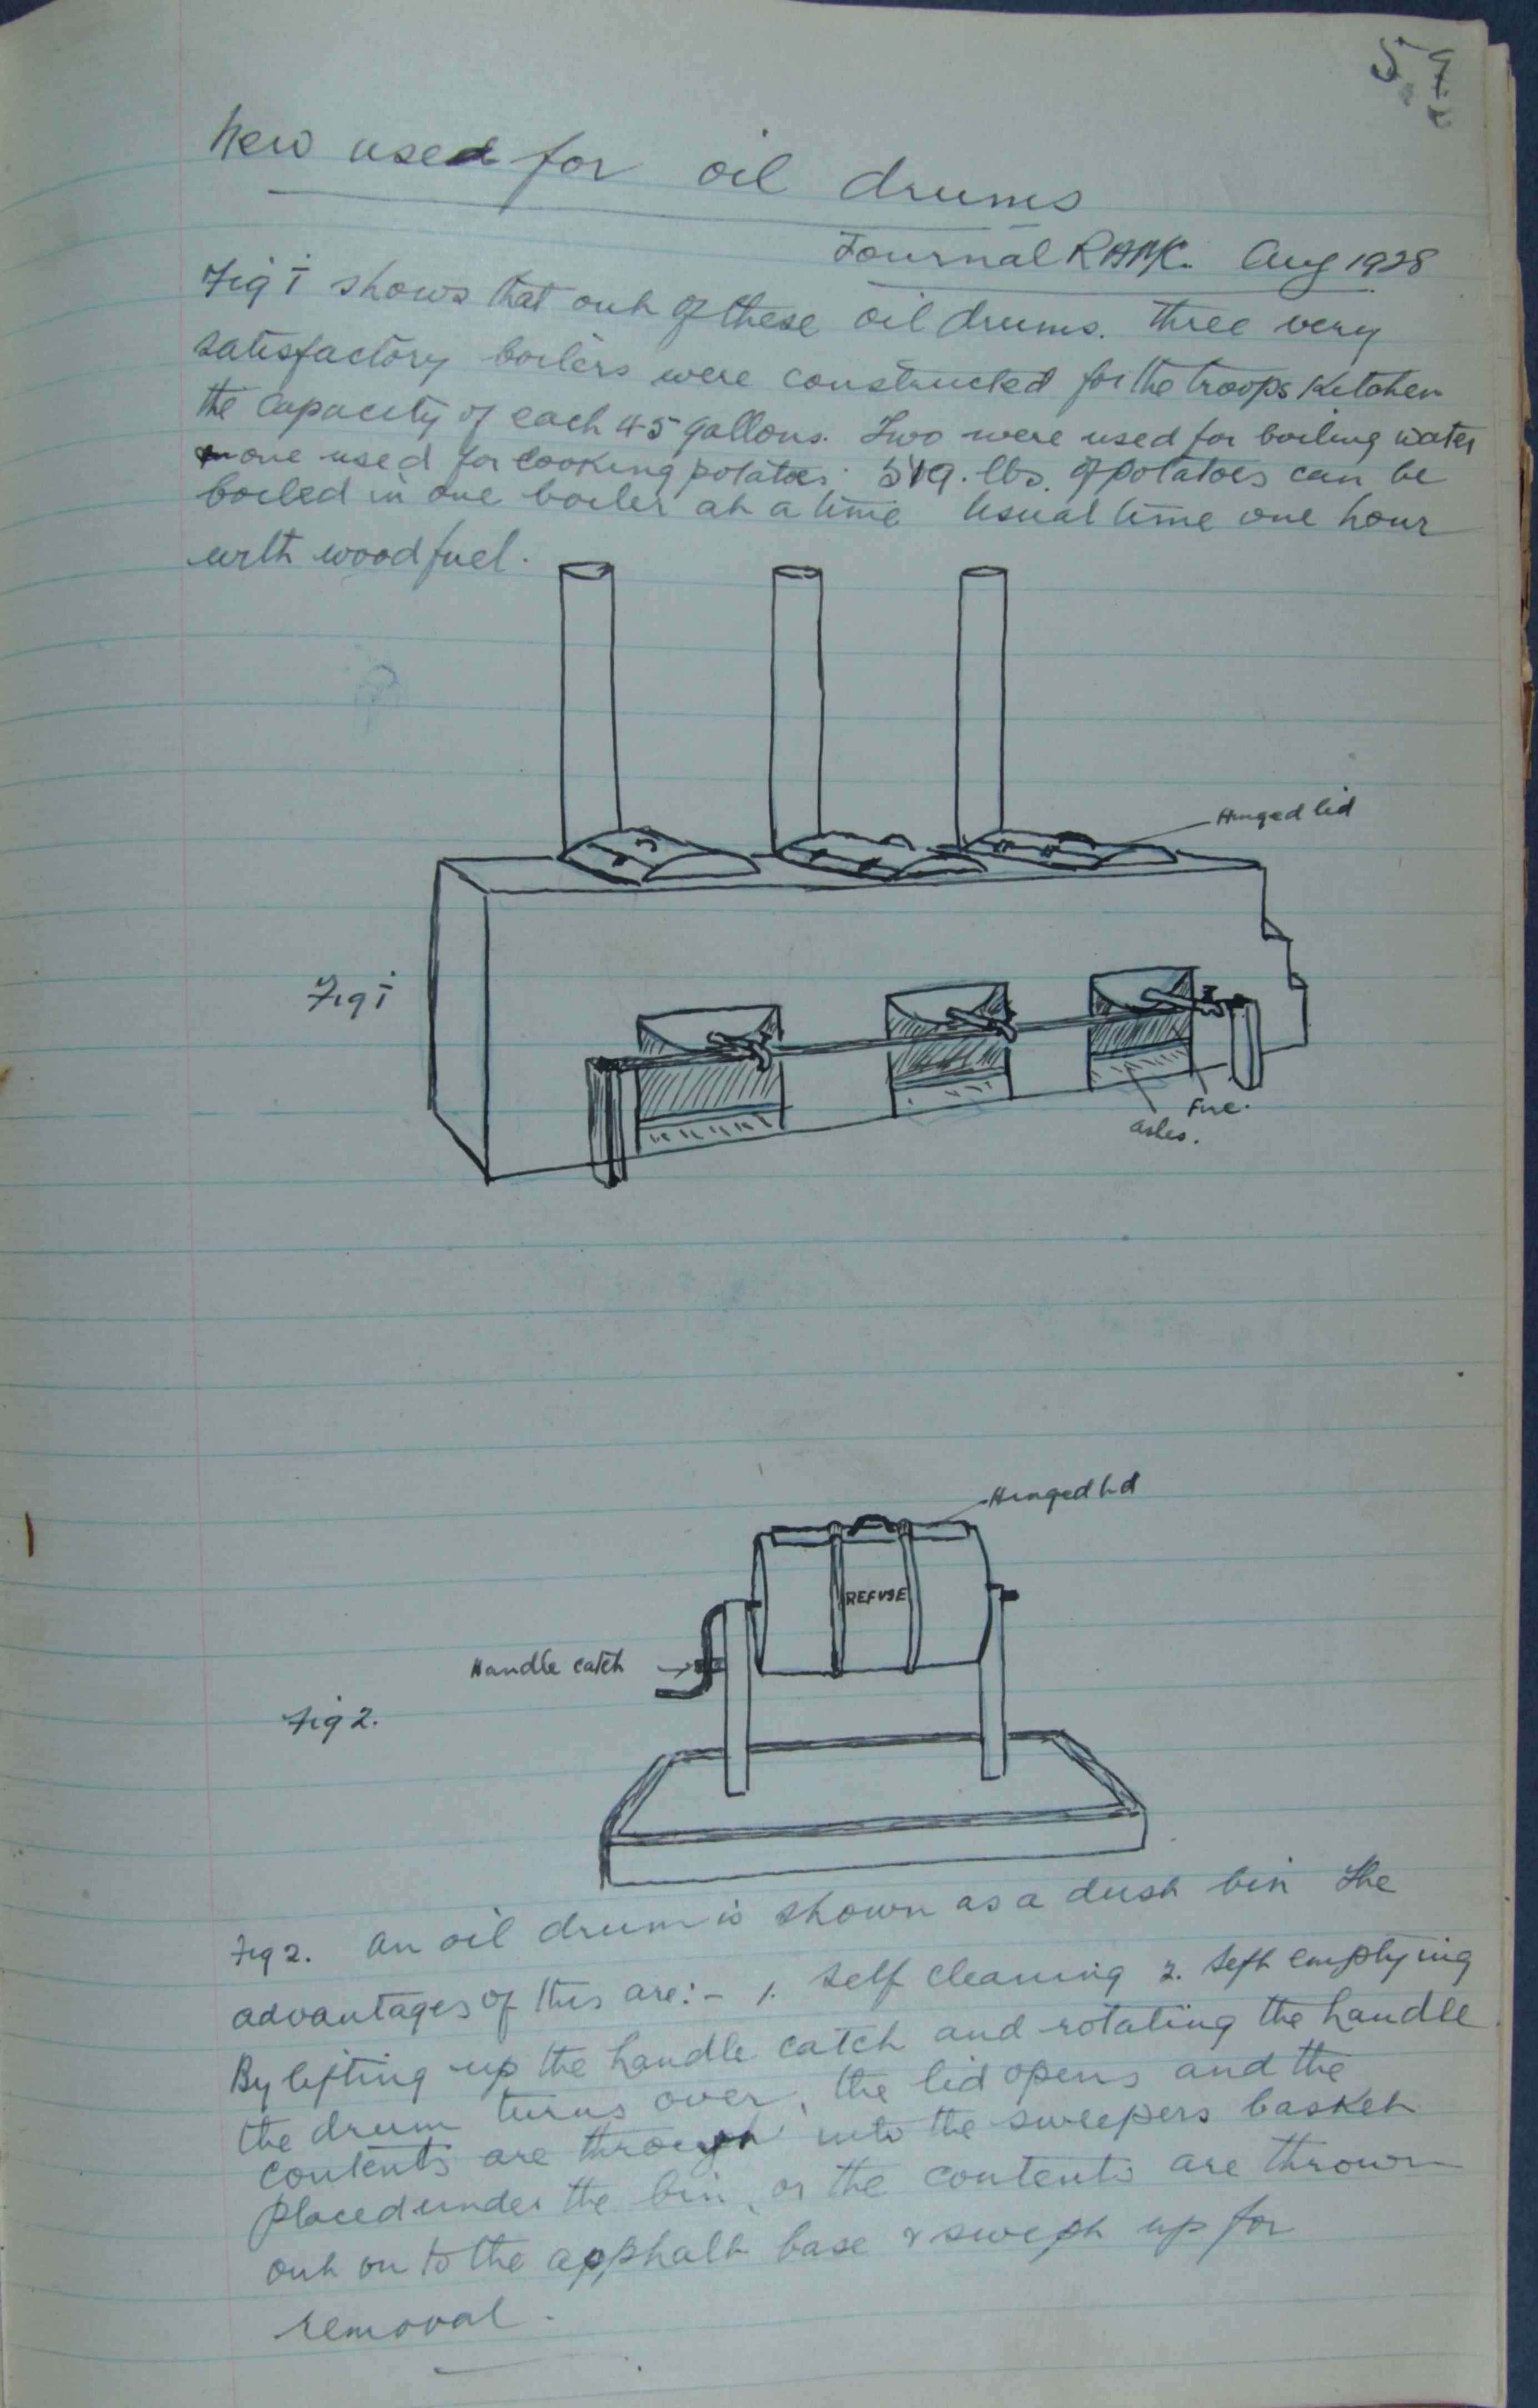 59
New used for oil drums
Journal RAMC. Aug 1928
Fig 1 shows that out of these oil drums. three very
satisfactory boilers were constructed for the troops Kitchen
the capacity of each 45 gallons. Two were used for boiling water
one used for cooking potatoes. lbs. of potatoes can be
boiled in one boiler at a time Usual time one hour
with wood fuel.
Hinged lid
Fig 1
Fire.
ashes.
Hinged lid
REFUSE
Handle catch
Fig 2.
Fig 2. An oil drum is shown as a dust bin The
advantages of this are:- 1. Self cleaning 2. Self emptying
By lifting up the handle catch and rotating the handle
the drum turns over, the lid opens and the
contents are through into the sweepers basket
placed under the bin, or the contents are thrown
out on to the apphalt base & swept up for
removal.